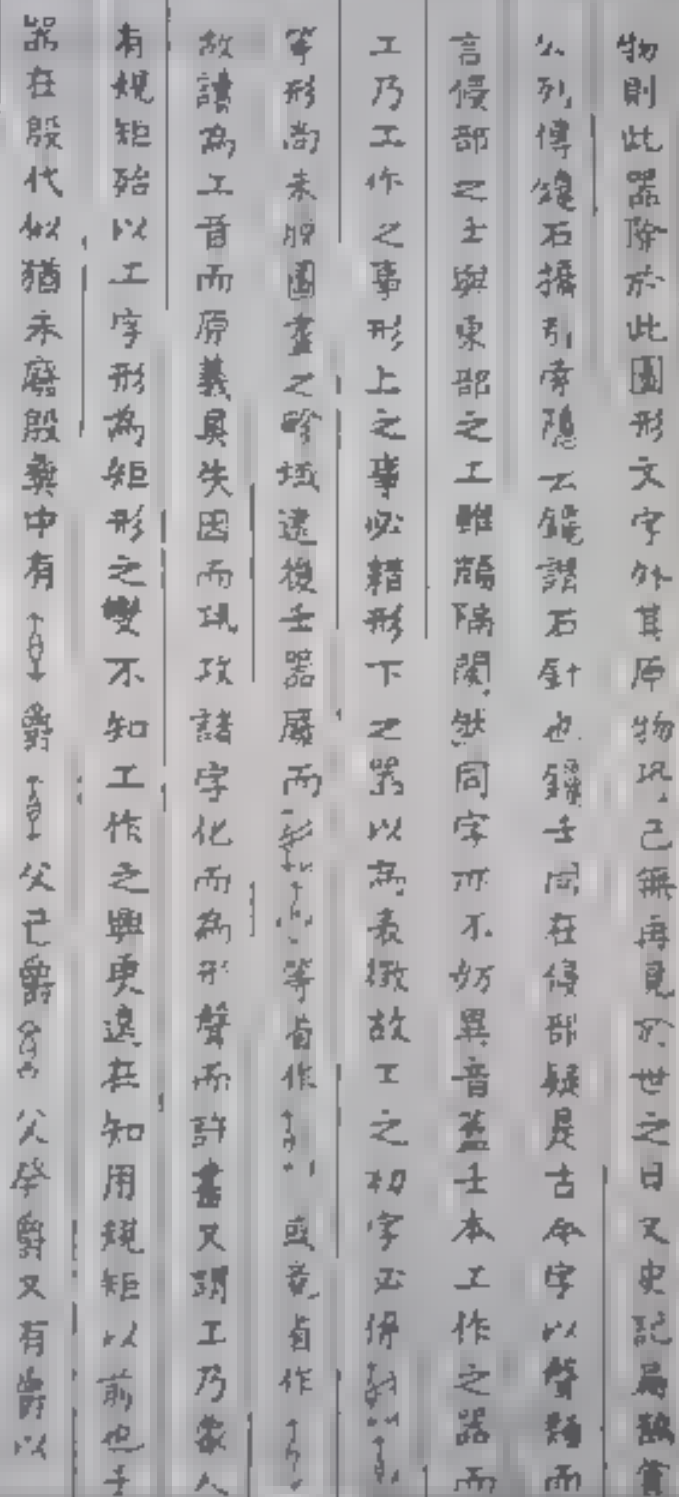 物則此器除於此圖形文字外其原物恐已無再見於世之日又史記扁鵲倉
公列傳鑱石撟引索隱云鑱謂石針也鑱壬同在侵部疑是古今字以聲類而
言侵部之壬與東部之工雖鴻隔閡然同字亦不妨異音蓋壬本工作之器而
工乃工作之事形上之事必藉形下之器以為表徵故工之初字必作
等形尚未脫圖畫之畛域逮後壬器廢而等省作或竟省作
故讀為工音而原義具失因而巩攻諸字化而為形聲而許書又謂工乃象人
有規矩殆以工字形為矩形之變不知工作之興更遠在知用規矩以前也壬
器在殷代似猶未廢殷彝中有爵父己爵父癸爵又有爵以